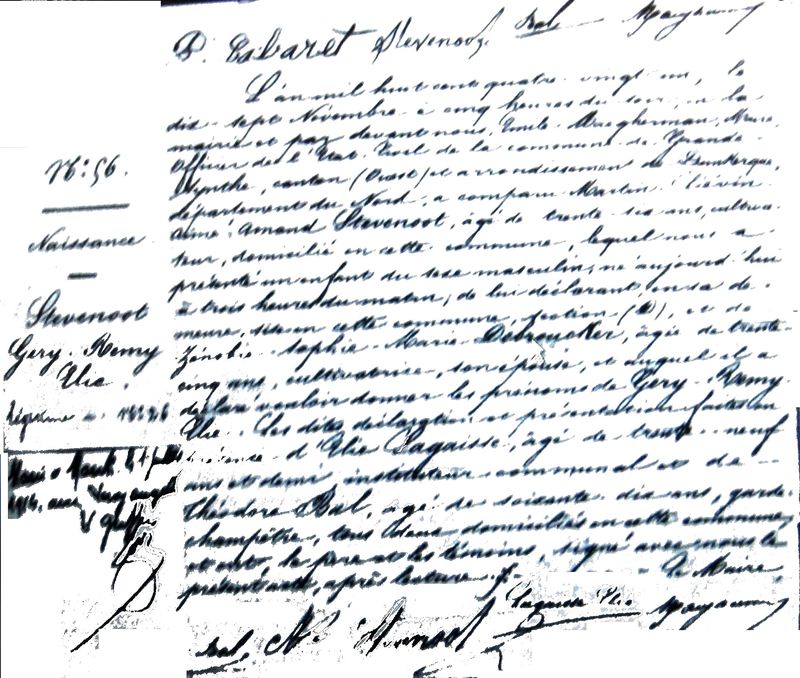 P. Cabaret Stevenoot Bal
N°: 56.
Naissance
Stevenoot
Gery-Remy
Elie.
Légitime N° 26
Marié à
1914, avec
L'an mil huit cent quatre-vingt un, le
dix-sept Novembre à cinq heures du soir, à la
mairie et par devant nous, Emile Maire
Officier de l'Etat Civil de la commune de Grande-
Synthe, canton (Ouest) et arrondissement de Dunkerque,
département du Nord, a comparu Martin Liévin
Aimé Amand Stevenoot, âgé de trente-six ans, cultiva-
teur, domicilié en cette commune, lequel nous a
présenté un enfant du sexe masculin, né aujourd'hui
à trois heures du matin, de lui déclarant, en sa de-
meure, sise en cette commune, section et de
Zénobie-Sophie-Marie Debroucker, âgée de trente-
cinq ans, cultivatrice, son épouse, et auquel il a
déclaré vouloir donner les prénoms de Géry-Remy-
Elie. Les dites déclaration et présentation faites en
présence d'Elie Lagaisse, âgé de trente-neuf
ans et demi instituteur communal et de
Théodore Bal, âgé de soixante-dix ans, garde-
champêtre, tous deux domiciliés en cette commune,
et ont, le père et les témoins, signé avec nous le
présent acte, après lecture. Le Maire
Bal Stevenoot Lagaisse Elie